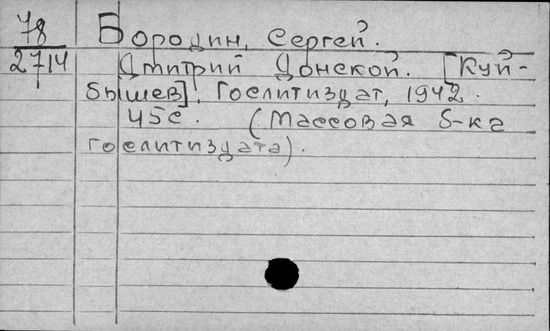 78 Бородин, Сергей.
2714 Дмитрий Донской. [Куй-
бышев], Гослитиздат, 1942.
45с. (Массовая б-ка
гослитиздата).